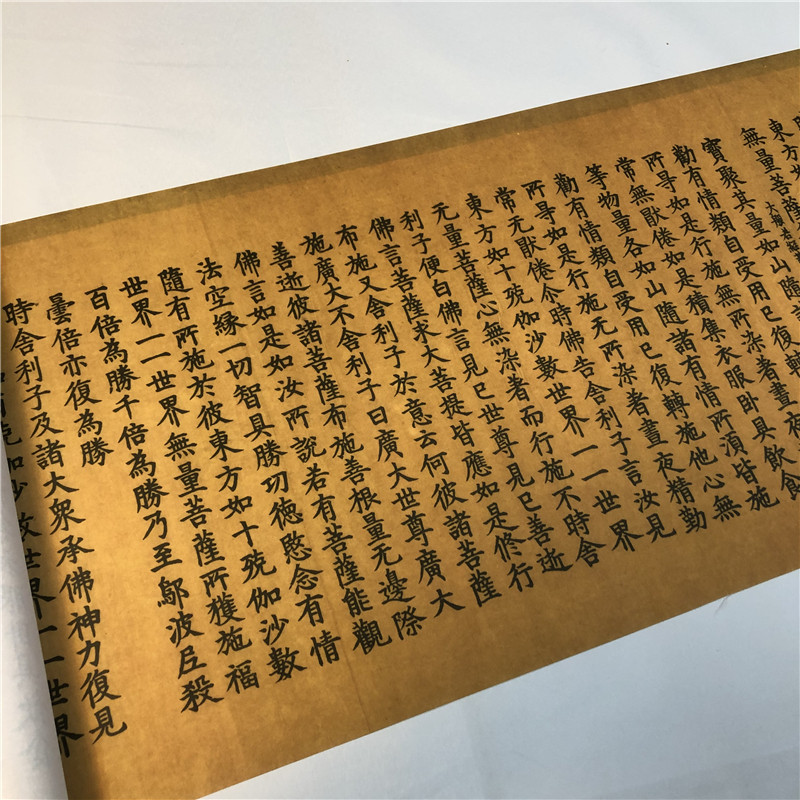 東方
無量菩薩
寶聚其量如山隨諸
勸有情類自受用已復
所尋如是行施無所染著晝夜
常無猒倦如是積集衣服臥具飲食
等物量各如山隨諸有情所湏皆施
勸有情類自受用已復轉施他心無
所尋如是行施无所染著晝夜精勤
常无猒倦尒時佛告舍利子言汝見
東方如十殑伽沙數世界一一世界
无量菩薩心無染著而行施不時舍
利子便白佛言見已世尊見已善逝
佛言菩薩求大菩提皆應如是修行
布施又舍利子於意云何彼諸菩薩
施廣大不舍利子曰廣大世尊廣大
善逝彼諸菩薩布施善根量无邊際
佛言如是如汝所說若有菩薩能觀
法空緣一切智具勝功德愍念有情
隨有所施於彼東方如十殑伽沙數
世界一一世界無量菩薩所獲施福
百倍為勝千倍為勝乃至鄔波尼殺
曇倍亦復為勝
時舍利子及諸大眾承佛神力復見
殑伽沙數世界一一世界